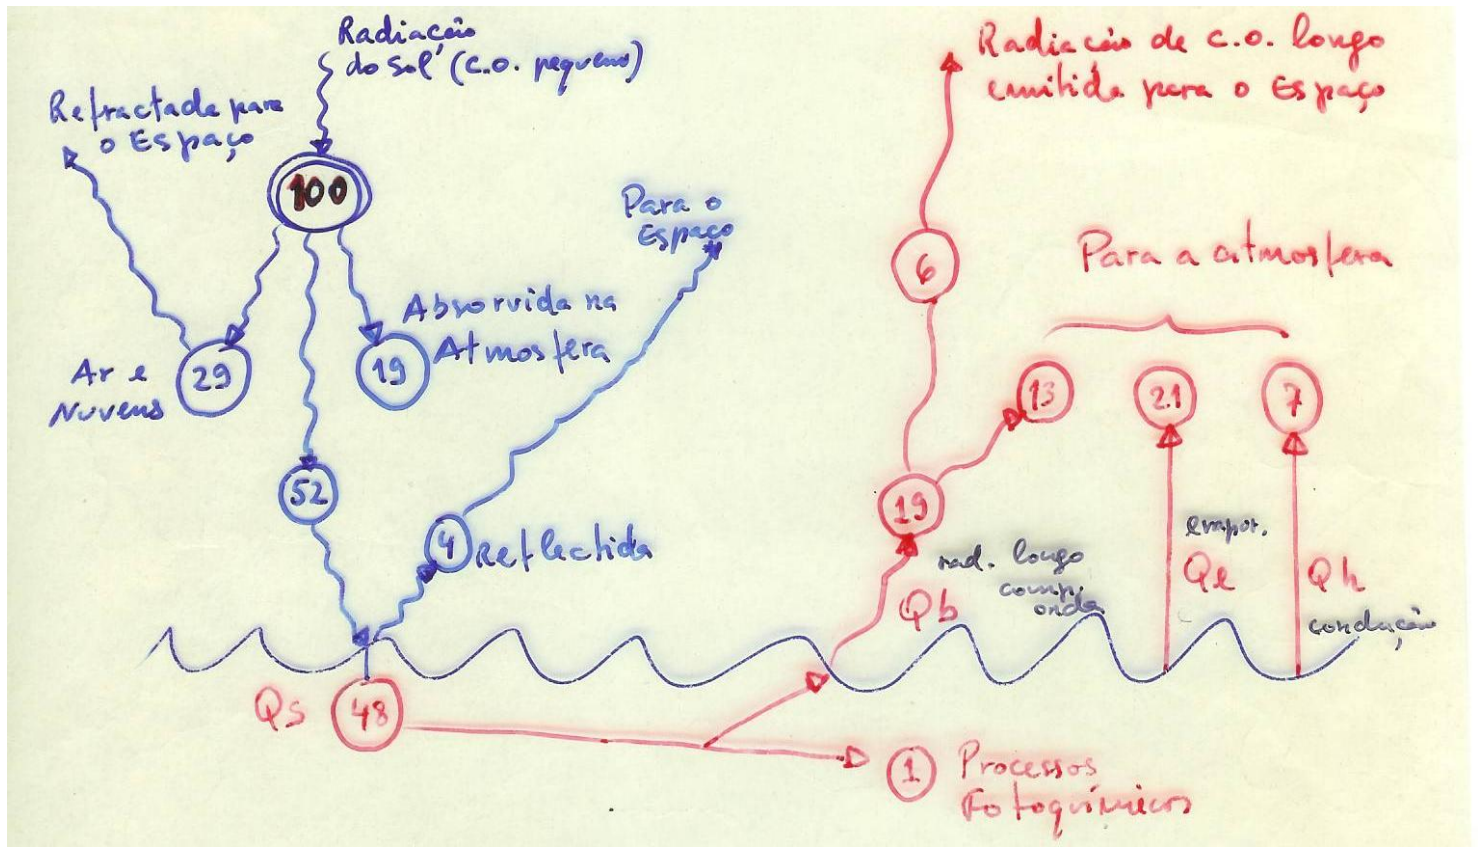 Radiação
do sol (c.o. pequeno)
Refractada para
o Espaço
100
Para o
Espaço
Ar e
Nuvens
29
19
Absorvida na
Atmosfera
52
4
Reflectida
Qs
48
Radiação de c.o. longo
emitida para o Espaço
6
Para a atmosfera
13
21
7
19
Qb
rad. longo
comp.
onda
evapor.
Qe
Qh
condução
1
Processos
Fotoquímicos